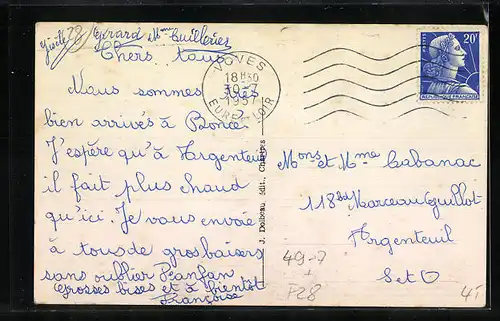 Gisèle 28 Gérard Mme Cuillerier
Chers tous
Nous sommes très
bien arrivés à Boncé
J'espère qu'à Argenteuil
il fait plus chaud
qu'ici. Je vous envoie
à tous de gros baisers
sans oublier Jeanfan
Grosses bises et à bientôt
Françoise
VOVES
18H30
10-7
1957
EURE-ET-LOIR
J. Dolbeau, édit., Chartres
20F
POSTES
REPUBLIQUE FRANÇAISE
Mons et Mme Cabanac
118 Bd Marceau Guillot
Argenteuil
S et O
49-7
+
P28
45